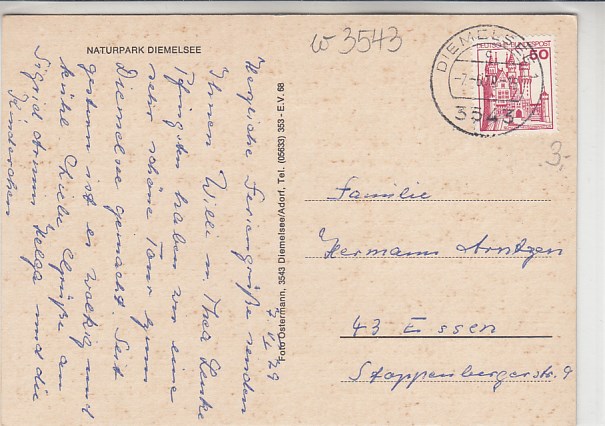 NATURPARK DIEMELSEE
7. VI. 79
Herzliche Feriengrüße senden
Ihnen Willi u. Thea Luke
Pfingsten haben wir eine
sehr schöne Tour zum
Diemelsee gemacht. Seit
gestern ist es wolkig und
kühl. Liebe Grüße an
Sigrid Armin Helga und die
Kinderchen
Foto Ostermann, 3543 Diemelsee/Adorf, Tel. (05633) 353 - E.V. 68
W 3543
DIEMELSEE 1
3543
DEUTSCHE BUNDESPOST
50
3,-
Familie
Hermann Arntzen
43 Essen
Stoppenbergerstr. 9